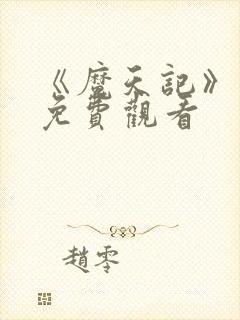 《魔天記》
免費觀看
趙零